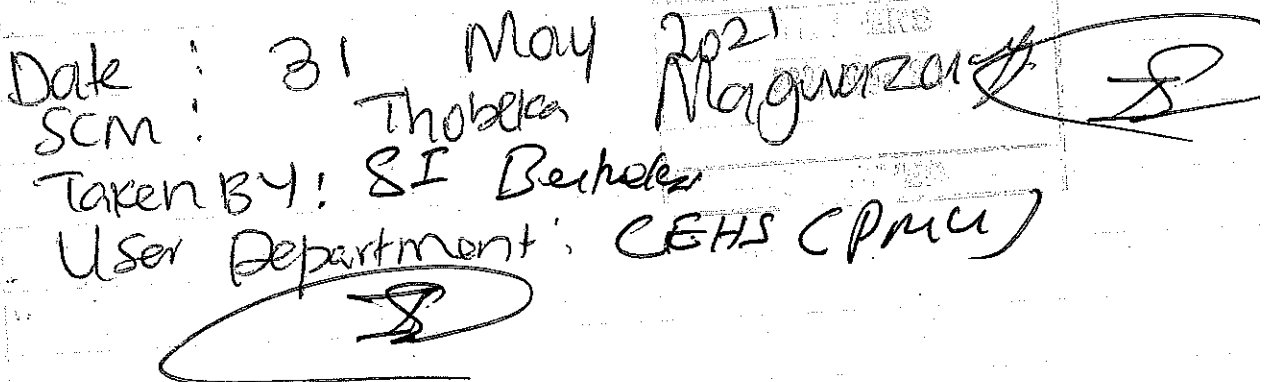 Date : 31 May 2021
SCM : Thobeka Magwaza
Taken BY: SI
User Department: CEHS (PMU)